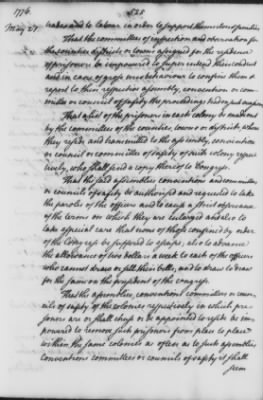 1776.
525
May 21.
trades and to labour in order to support themselves & families
That the committees of inspection and observation for
the counties districts or towns assigned for the residence
of prisoners be impowered to superintend their conduct
and in cases of gross misbehaviour to confine them &
report to their respective assembly, convention or com-
mittee or council of safety the proceedings had on such occasion
That a list of the prisoners in each colony be made out
by the committees of the counties, towns or districts where
they reside and transmitted to the assembly, convention
or council or committee of safety of such colony respec-
tively, who shall send a copy thereof to Congress.
That the said assemblies conventions and committees
or councils of safety be authorised and requested to take
the paroles of the officers and to cause a strict observance
of the terms on which they are enlarged and also to
take especial care that none of those confined by order
of the Congress be suffered to escape, also to advance
the allowance of two dollars a week to each of the officers
who cannot draw or sell their bills, and to draw
for the same on the president of the congress.
That the assemblies, conventions committees or coun-
cils of safety of the colonies respectively in which pri-
soners are or shall be appointed to reside be im-
powered to remove such prisoners from place to place
within the same colonies as often as to such assemblies
conventions committees or councils of safety it shall
seem